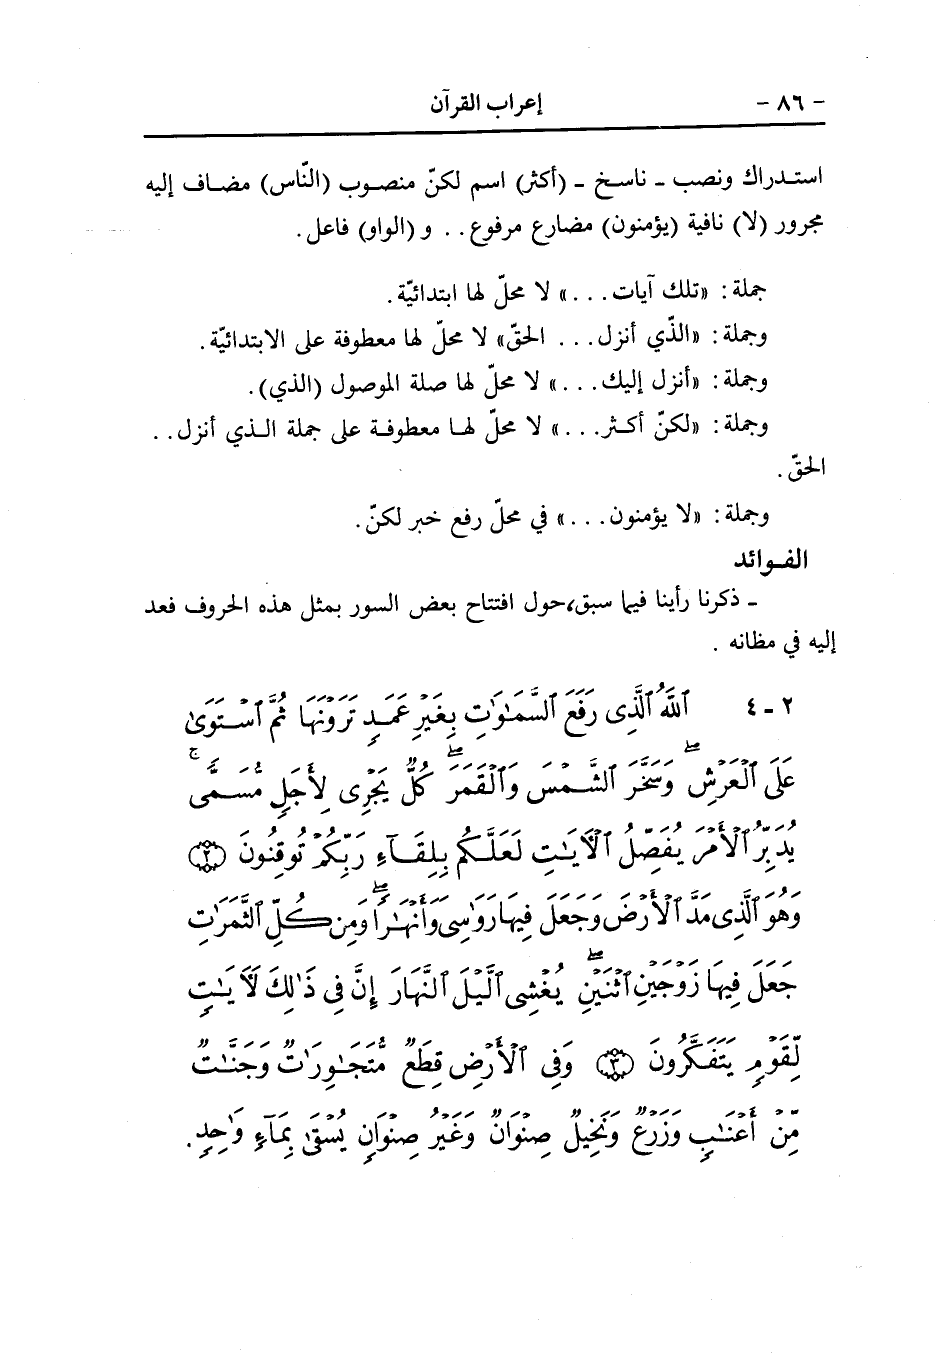 - ٨٦ - إعراب القرآن
استـدراك ونصب ـ ناسـخ ـ (أكثر) اسم لكنّ منصـوب (النّاس) مضـاف إليه
مجرور (لا) نافية (يؤمنون) مضارع مرفوع . . و (الواو) فاعل .
جملة : «تلك آيات . . .» لا محلّ لها ابتدائيّة .
وجملة : «الذّي أنزل . . . الحقّ» لا محلّ لها معطوفة على الابتدائيّة .
وجملة : «أنزل إليك . . .» لا محلّ لها صلة الموصول (الذي) .
وجملة : «لكنّ أكـثر . . .» لا محلّ لهـا معطوفـة على جملة الـذي أنزل . .
الحقّ .
وجملة : «لا يؤمنون . . .» في محلّ رفع خبر لكنّ .
الفـوائد
ـ ذكرنا رأينا فيما سبق،حول افتتاح بعض السور بمثل هذه الحروف فعد
إليه في مظانه .
٢ - ٤ ٱللَّهُ ٱلَّذِى رَفَعَ ٱلسَّمَٰوَٰتِ بِغَيْرِ عَمَدٍ تَرَوْنَهَا ثُمَّ ٱسْتَوَىٰ
عَلَى ٱلْعَرْشِۖ وَسَخَّرَ ٱلشَّمْسَ وَٱلْقَمَرَۖ كُلٌّ يَجْرِى لِأَجَلٍ مُّسَمًّىۚ
يُدَبِّرُ ٱلْأَمْرَ يُفَصِّلُ ٱلْآيَٰتِ لَعَلَّكُم بِلِقَآءِ رَبِّكُمْ تُوقِنُونَ ﴿٢﴾
وَهُوَ ٱلَّذِى مَدَّ ٱلْأَرْضَ وَجَعَلَ فِيهَا رَوَٰسِىَ وَأَنْهَٰرًاۖ وَمِن كُلِّ ٱلثَّمَرَٰتِ
جَعَلَ فِيهَا زَوْجَيْنِ ٱثْنَيْنِۖ يُغْشِى ٱلَّيْلَ ٱلنَّهَارَ إِنَّ فِى ذَٰلِكَ لَآيَٰتٍ
لِّقَوْمٍ يَتَفَكَّرُونَ ﴿٣﴾ وَفِى ٱلْأَرْضِ قِطَعٌ مُّتَجَٰوِرَٰتٌ وَجَنَّٰتٌ
مِّنْ أَعْنَٰبٍ وَزَرْعٌ وَنَخِيلٌ صِنْوَانٌ وَغَيْرُ صِنْوَانٍ يُسْقَىٰ بِمَآءٍ وَٰحِدٍ .